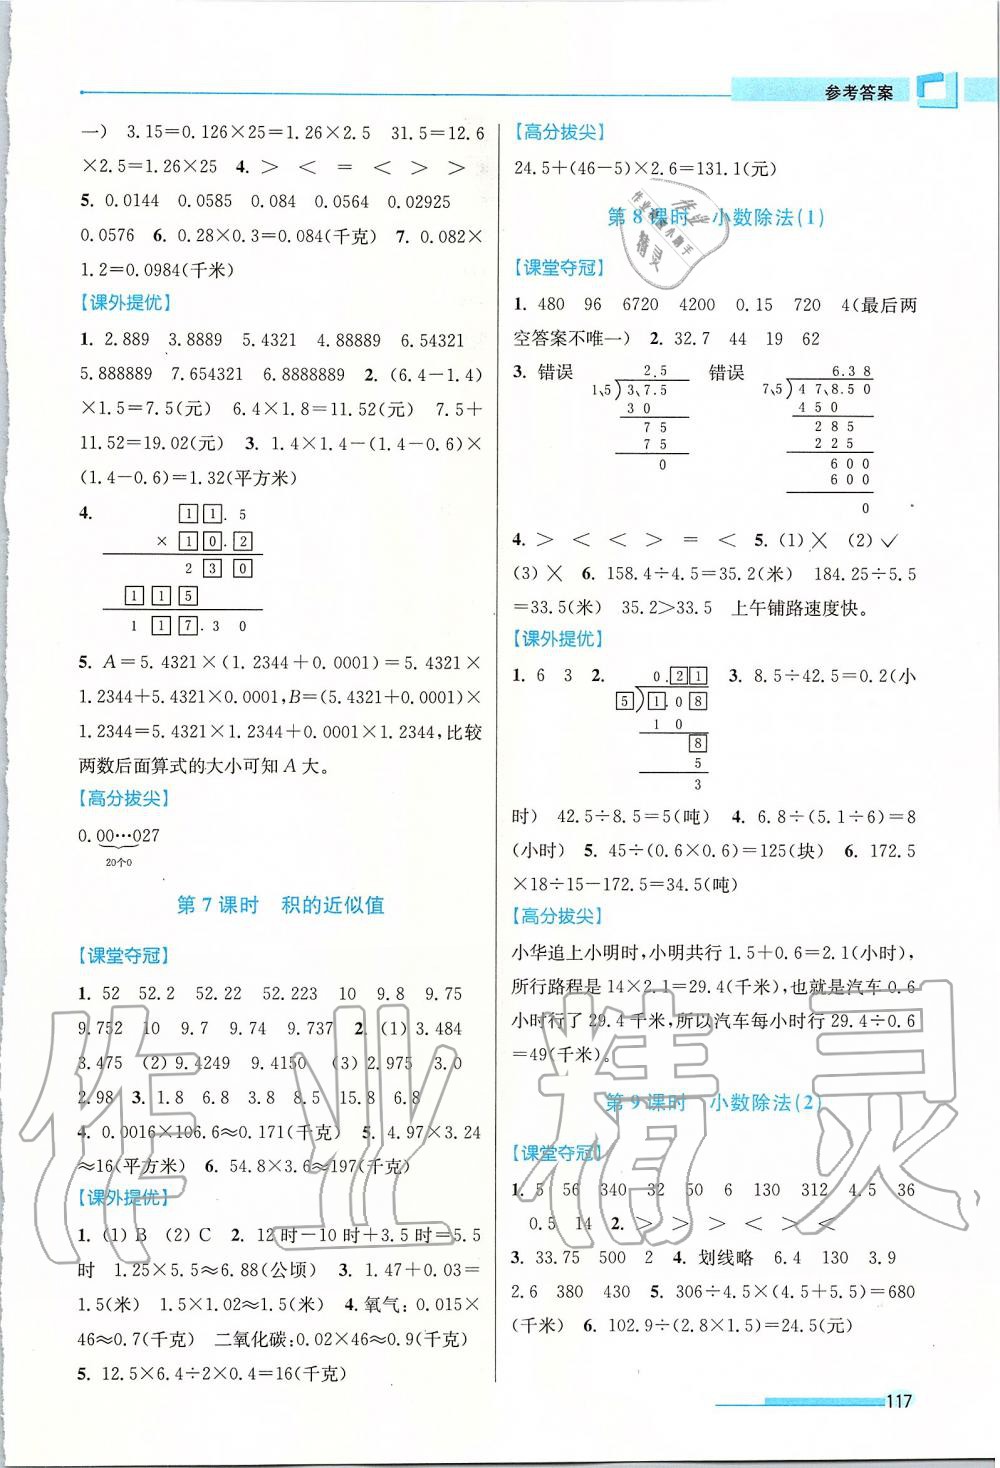 参考答案
一) 3.15=0.126×25=1.26×2.5 31.5=12.6
×2.5=1.26×25 4. > < = < > >
5. 0.0144 0.0585 0.084 0.0564 0.02925
0.0576 6. 0.28×0.3=0.084(千克) 7. 0.082×
1.2=0.0984(千米)
【课外提优】
1. 2.889 3.8889 5.4321 4.88889 6.54321
5.888889 7.654321 6.8888889 2. (6.4-1.4)
×1.5=7.5(元) 6.4×1.8=11.52(元) 7.5+
11.52=19.02(元) 3. 1.4×1.4-(1.4-0.6)×
(1.4-0.6)=1.32(平方米)
4.
1 1 . 5
× 1 0 . 2
2 3 0
1 1 5
1 1 7 . 3 0
5. A=5.4321×(1.2344+0.0001)=5.4321×
1.2344+5.4321×0.0001,B=(5.4321+0.0001)×
1.2344=5.4321×1.2344+0.0001×1.2344,比较
两数后面算式的大小可知 A 大。
【高分拔尖】
0.00…027
20个0
第 7 课时 积的近似值
【课堂夺冠】
1. 52 52.2 52.22 52.223 10 9.8 9.75
9.752 10 9.7 9.74 9.737 2. (1)3.484
3.475 (2)9.4249 9.4150 (3)2.975 3.0
2.98 3. 1.8 6.8 3.8 8.5 15.8 6.8
4. 0.0016×106.6≈0.171(千克) 5. 4.97×3.24
≈16(平方米) 6. 54.8×3.6≈197(千克)
【课外提优】
1. (1)B (2)C 2. 12时-10时+3.5时=5.5
时 1.25×5.5≈6.88(公顷) 3. 1.47+0.03=
1.5(米) 1.5×1.02≈1.5(米) 4. 氧气:0.015×
46≈0.7(千克) 二氧化碳:0.02×46≈0.9(千克)
5. 12.5×6.4÷2×0.4=16(千克)
【高分拔尖】
24.5+(46-5)×2.6=131.1(元)
第 8 课时 小数除法(1)
【课堂夺冠】
1. 480 96 6720 4200 0.15 720 4(最后两
空答案不唯一) 2. 32.7 44 19 62
3. 错误 2.5 错误 6.38
1.5 ) 3.7.5 7.5 ) 4 7.8.5 0
3 0 4 5 0
7 5 2 8 5
7 5 2 2 5
0 6 0 0
6 0 0
0
4. > < < > = < 5. (1)× (2)✓
(3)× 6. 158.4÷4.5=35.2(米) 184.25÷5.5
=33.5(米) 35.2>33.5 上午铺路速度快。
【课外提优】
1. 6 3 2. 0.2 1 3. 8.5÷42.5=0.2(小
5 ) 1.0 8
1 0
8
5
3
时) 42.5÷8.5=5(吨) 4. 6.8÷(5.1÷6)=8
(小时) 5. 45÷(0.6×0.6)=125(块) 6. 172.5
×18÷15-172.5=34.5(吨)
【高分拔尖】
小华追上小明时,小明共行 1.5+0.6=2.1(小时),
所行路程是 14×2.1=29.4(千米),也就是汽车 0.6
小时行了 29.4 千米,所以汽车每小时行 29.4÷0.6
=49(千米)。
第 9 课时 小数除法(2)
【课堂夺冠】
1. 5 56 340 32 50 6 130 312 4.5 36
0.5 14 2. > > > < > <
3. 33.75 500 2 4. 划线略 6.4 130 3.9
2.6 380 430 5. 306÷4.5×(4.5+5.5)=680
(千米) 6. 102.9÷(2.8×1.5)=24.5(元)
117
作业精灵